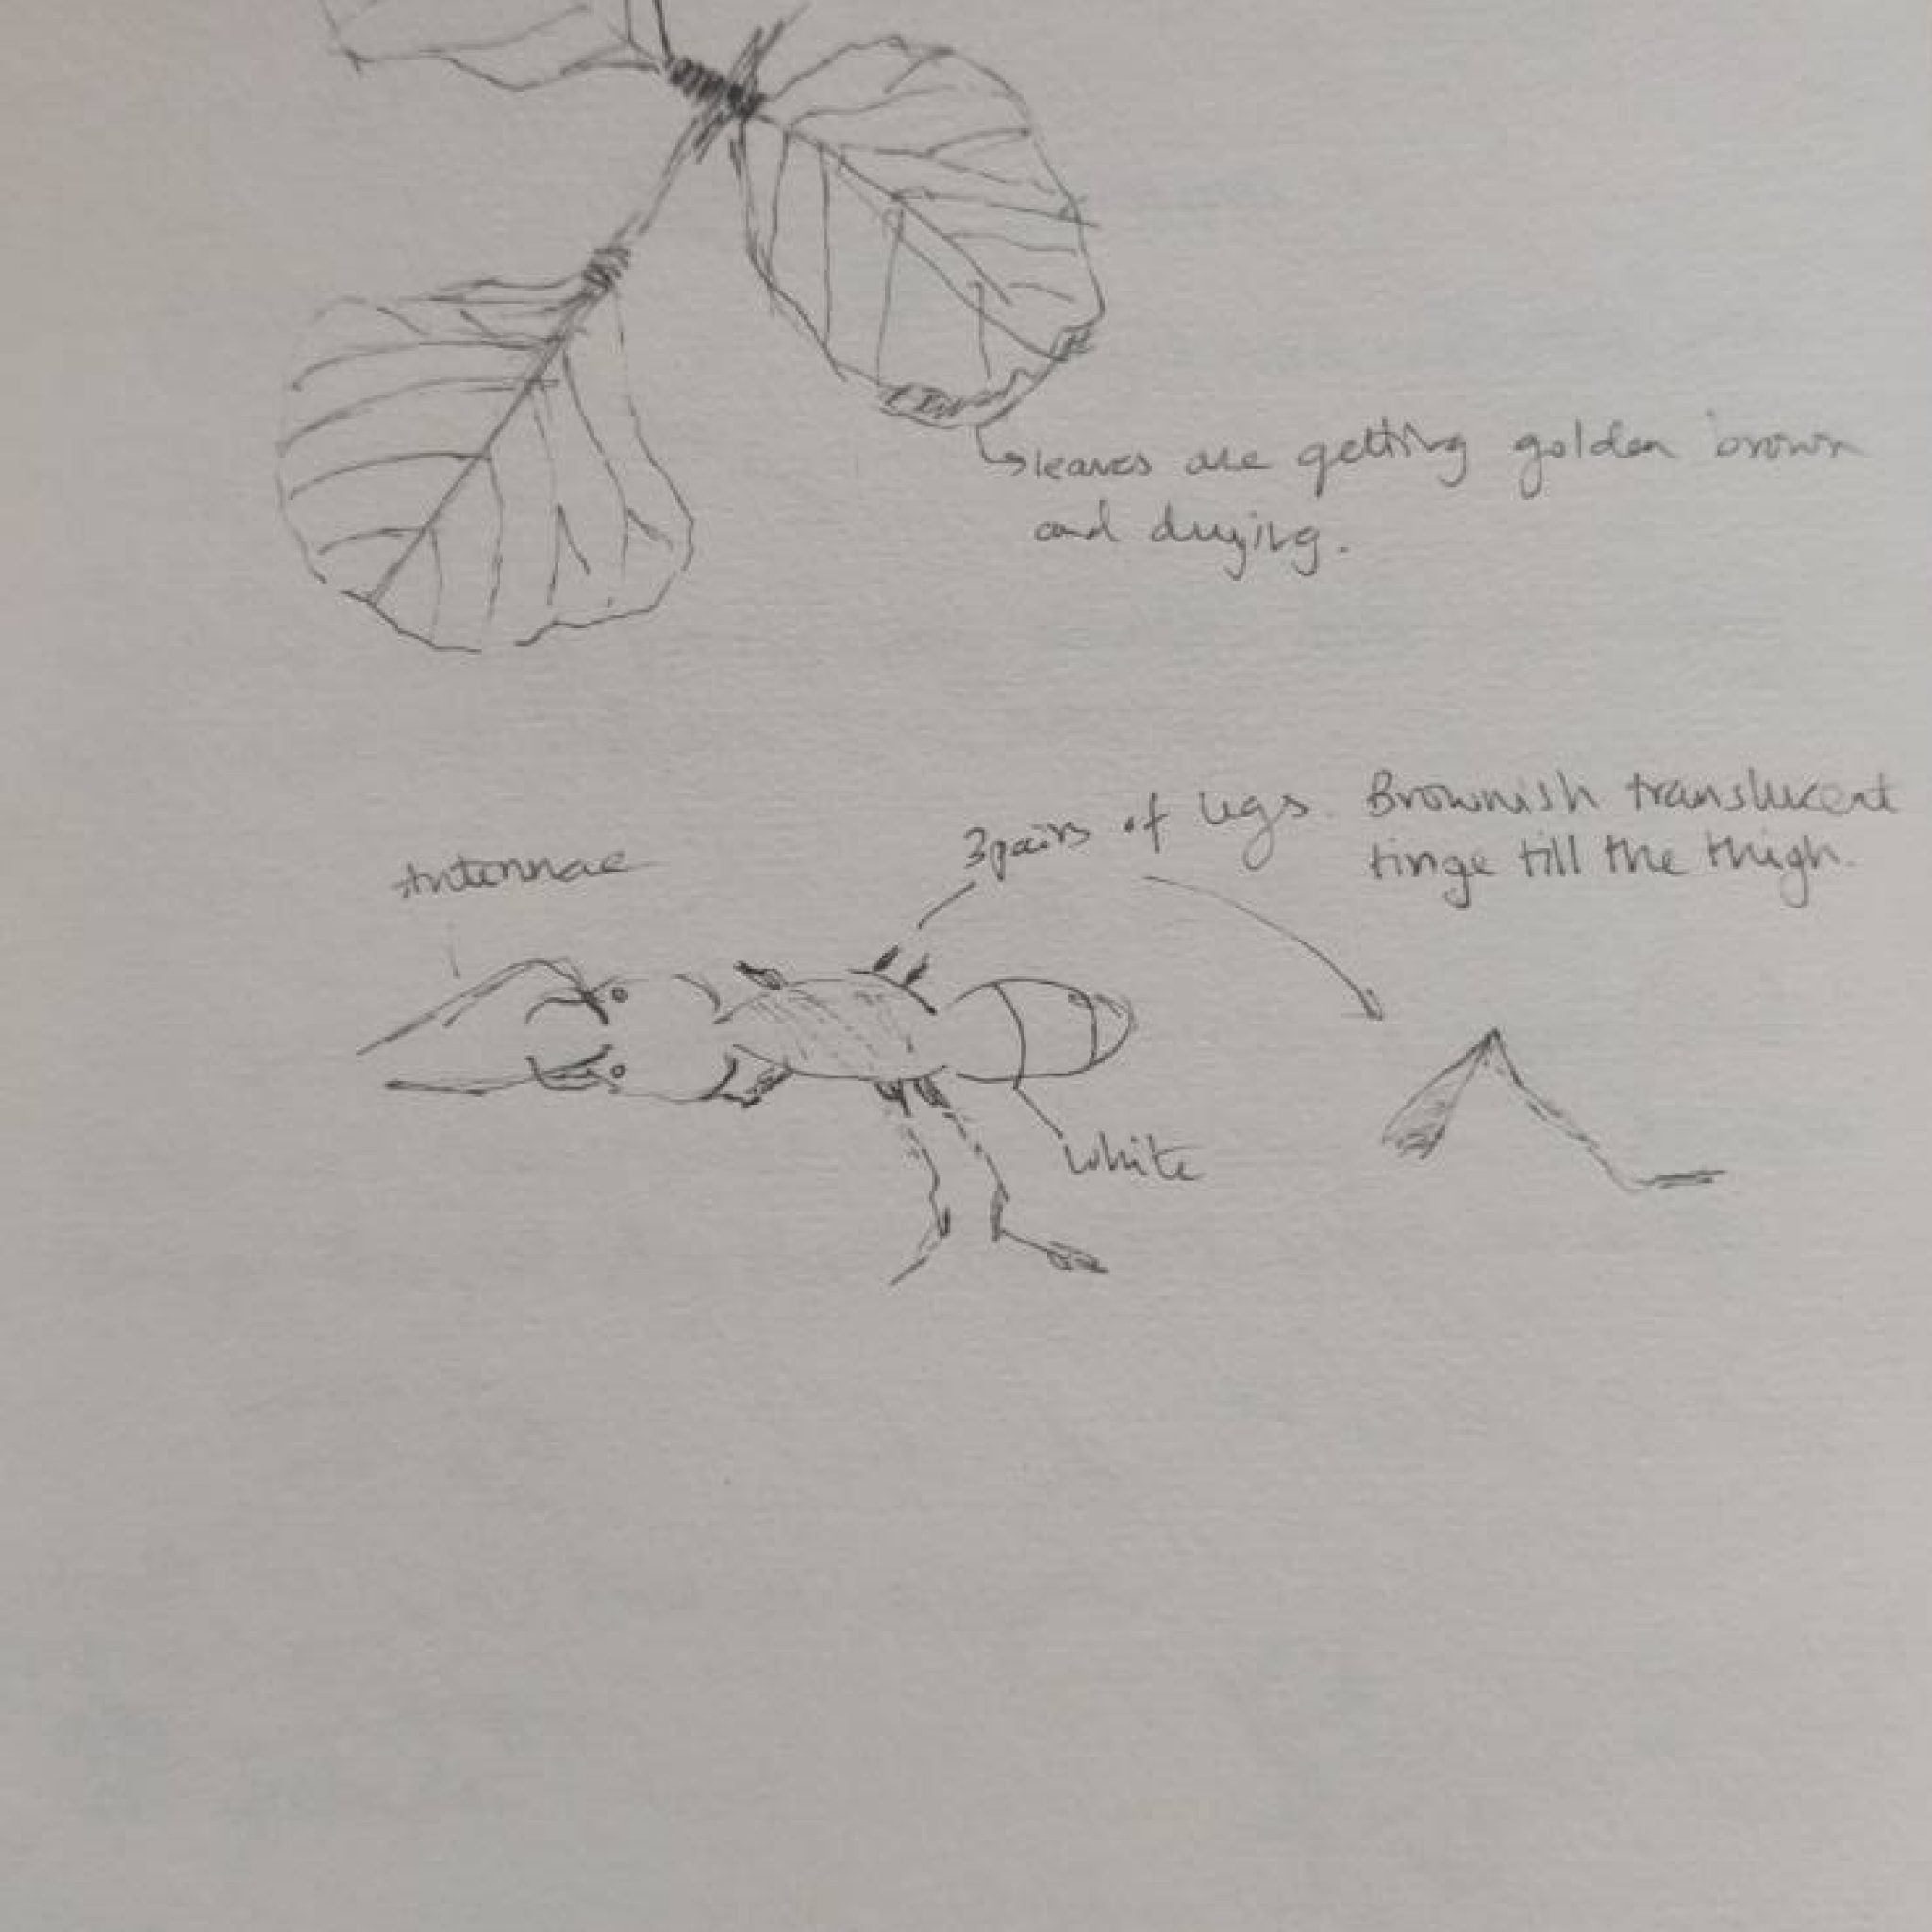 leaves are getting golden brown
and drying.
Antennae
3 pairs of legs. Brownish translucent
tinge till the thigh.
white